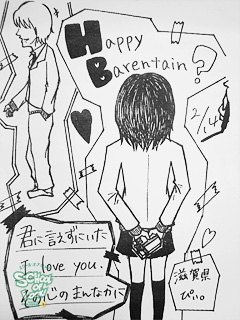 Happy
Barentain?
2/14
君に言えずにいた
I love you.
そのじのまんなかに
滋賀県
ぴぃ。